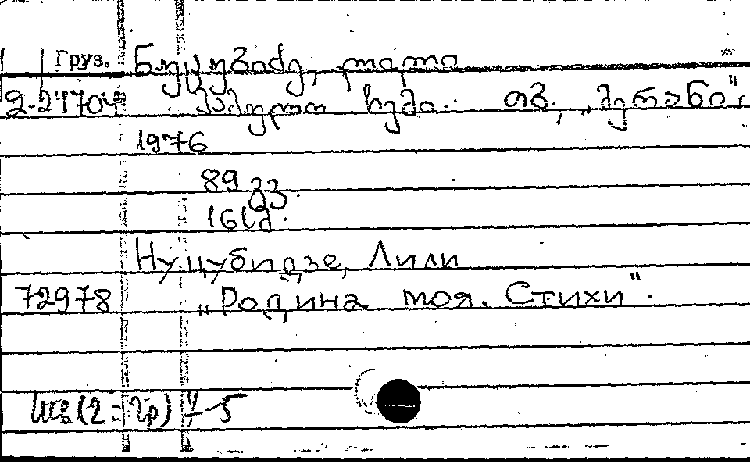 Груз. ნუცუბიძე, ლილი
2-24704 სამშობლო ჩემო. თბ., „მერანი",
1976
89 გვ.
16სმ.
Нуцубидзе, Лили
72978 „Родина моя. Стихи".
(2=Гр) 4-5